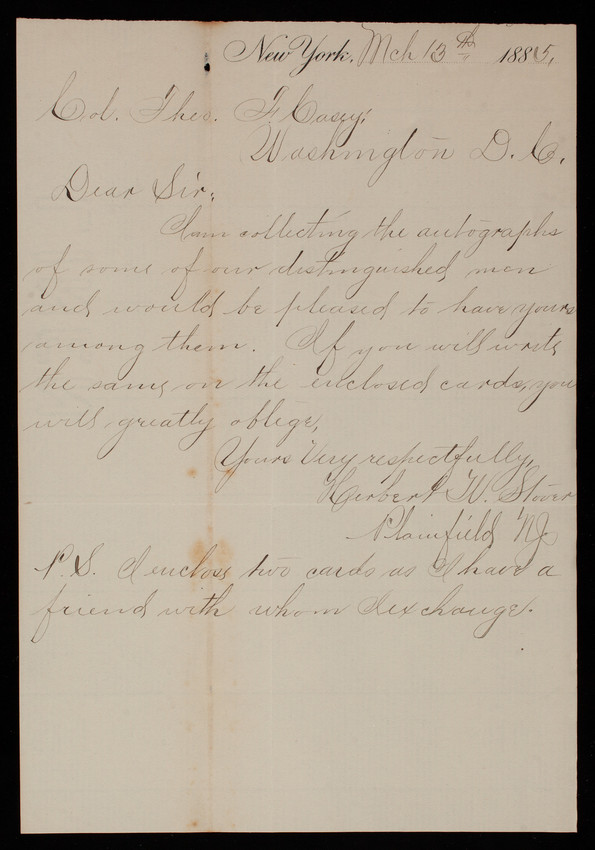 New York, Mch 13th 1885,
Col. Theo. F. Casey;
Washington D.C.
Dear Sir;
I am collecting the autographs
of some of our distinguished men
and would be pleased to have yours
among them. If you will write
the same on the enclosed cards, you
will greatly oblige,
Yours Very respectfully,
Herbert W. Stover
Plainfield NJ
P.S. I enclose two cards as I have a
friend with whom I exchange.